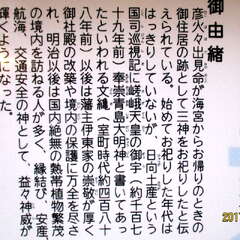 御由緒
彦火々出見命が海宮からお帰りのときの
御住居の跡として三神をお祀りしたと伝
えられている。始めてお祀りした年代は
はっきりしていないが、日向土産という
国司巡視記に嵯峨天皇の御宇(約千七
十九年前)奉崇青島大明神と書いてあっ
たといわれる文亀(室町時代約四百八十
八年前)以後は藩主伊東家の崇敬が厚く
御社殿の改築や境内の保護に万全を尽さ
れ、明治以後は国内絶無の熱帯植物繁茂
の境内を訪ねる人が多く、縁結び、安産、
航海、交通安全の神として、益々神威が
輝くようになった